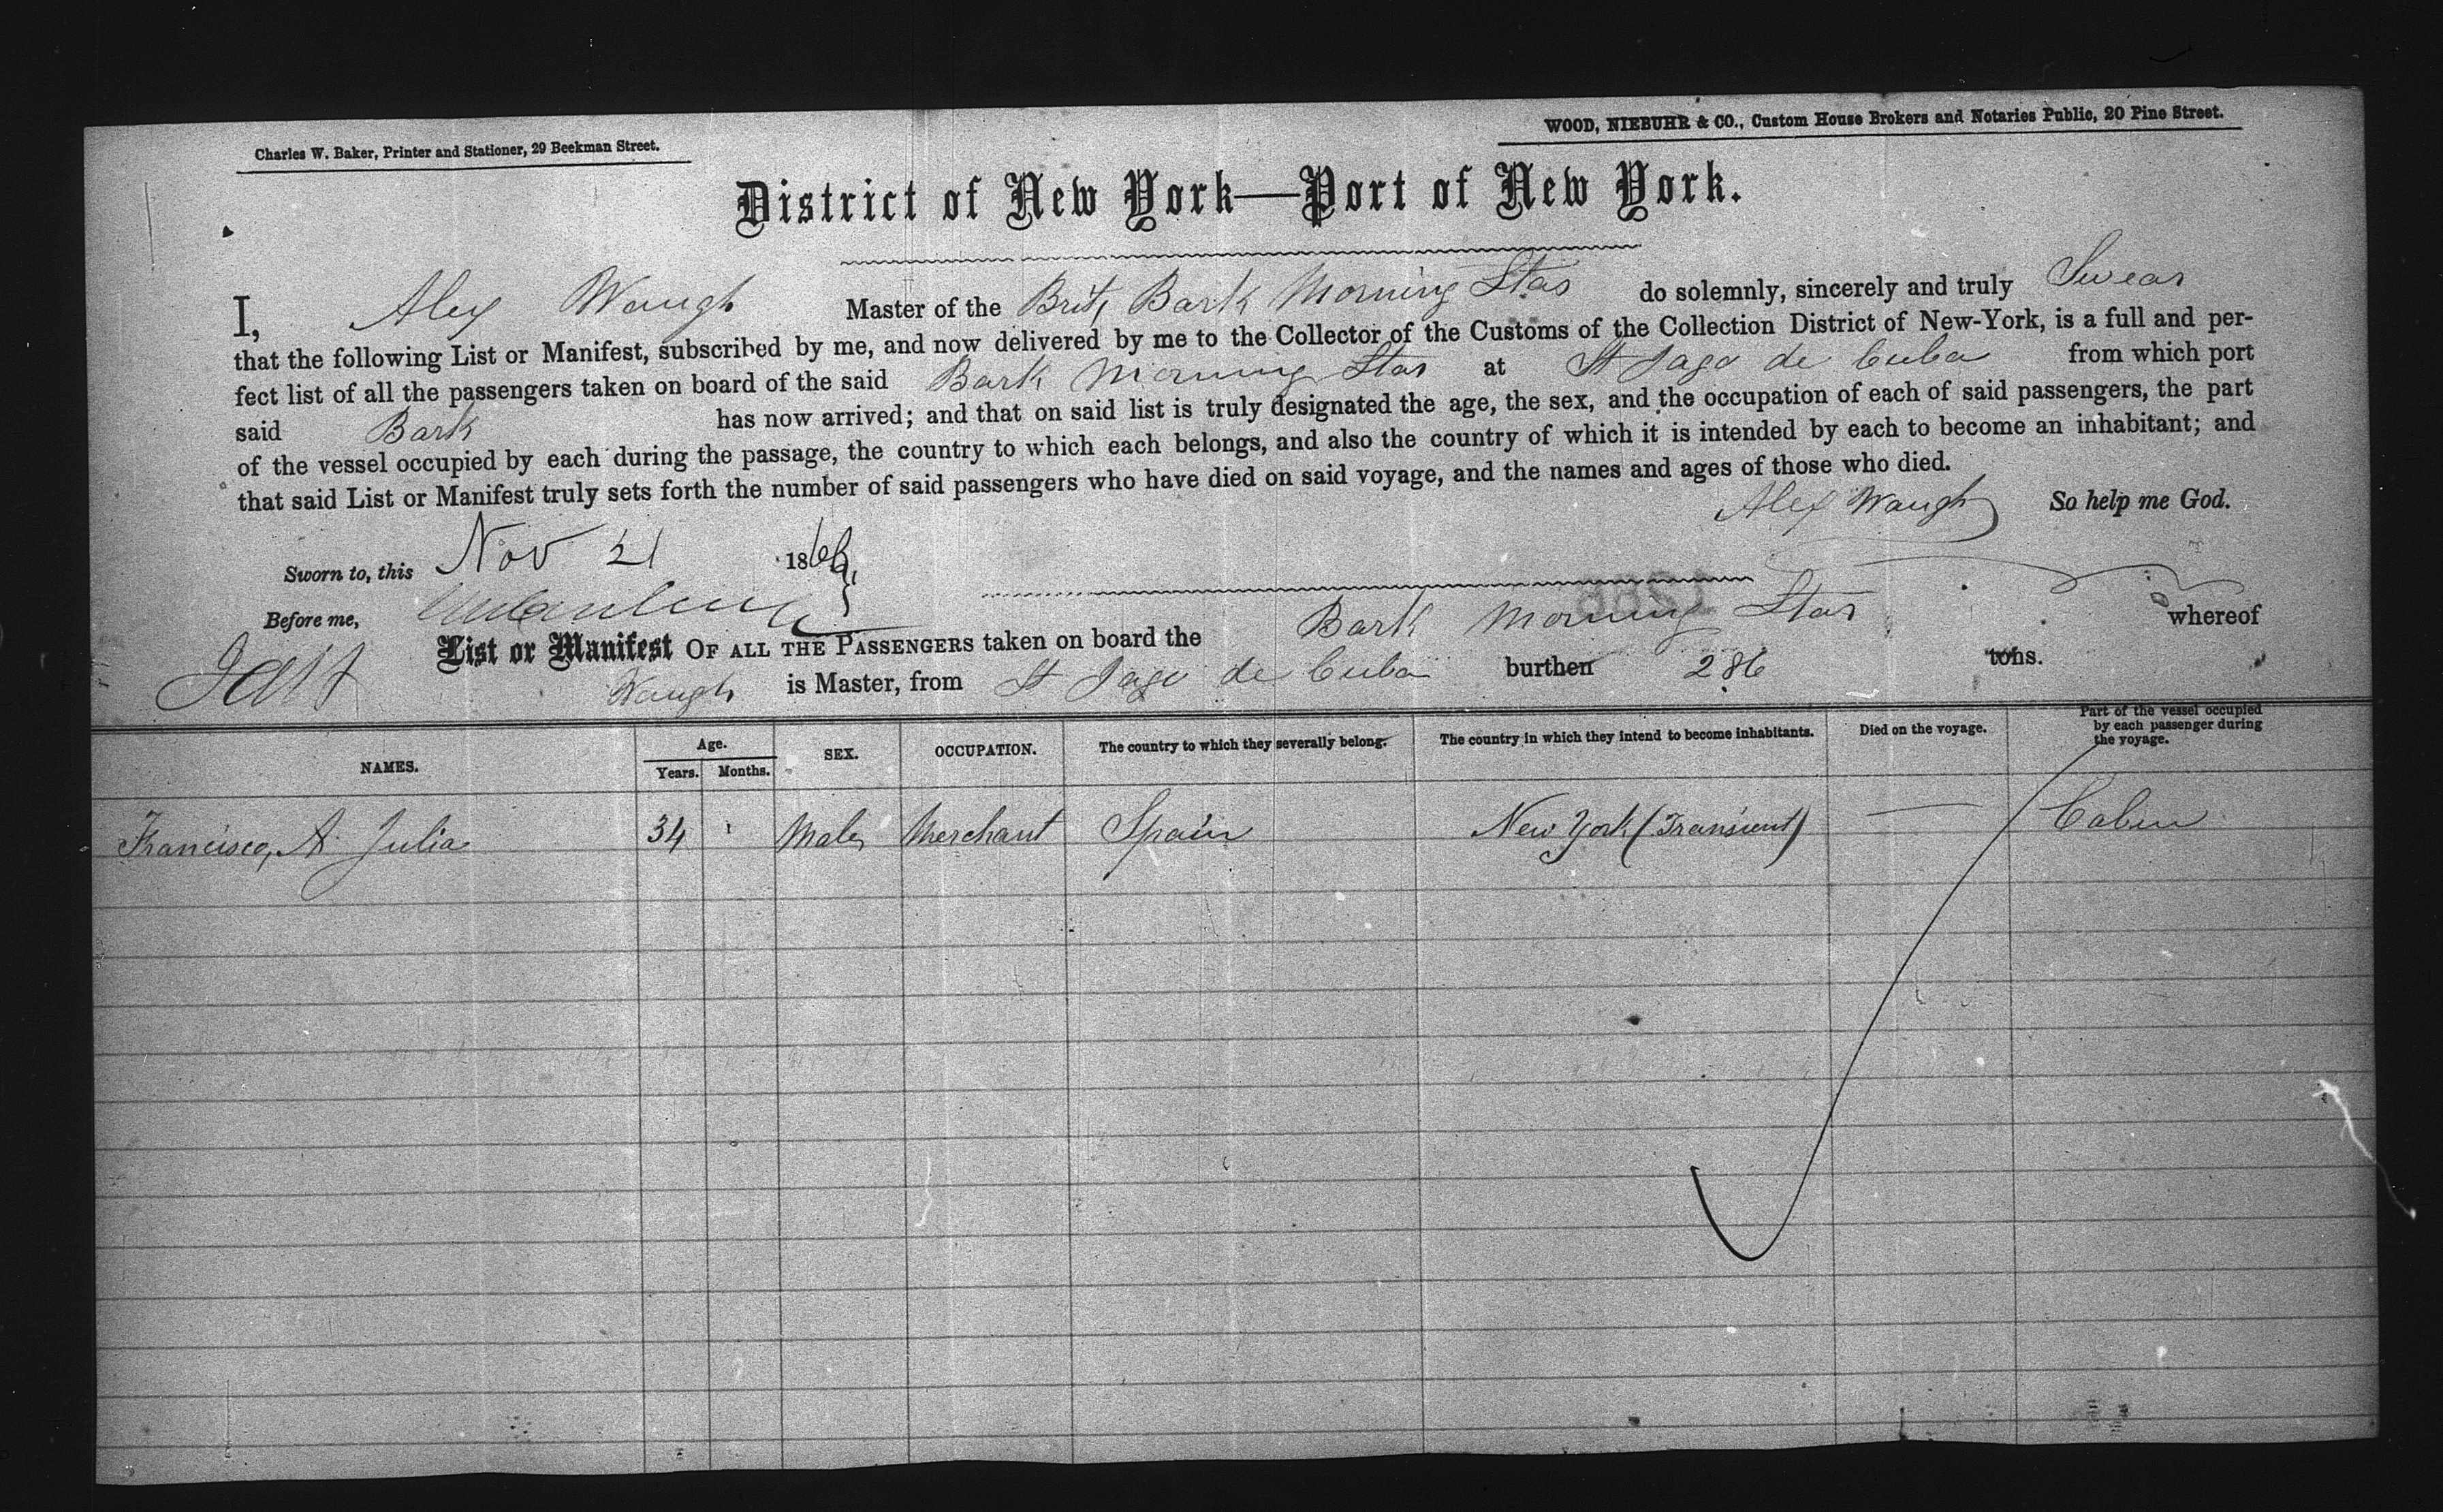 Charles W. Baker, Printer and Stationer, 29 Beekman Street.
WOOD, NIEBUHR & CO., Custom House Brokers and Notaries Public, 20 Pine Street.
District of New York—Port of New York.
I, Alex Waugh Master of the Brit Bark Morning Star do solemnly, sincerely and truly Swear
that the following List or Manifest, subscribed by me, and now delivered by me to the Collector of the Customs of the Collection District of New-York, is a full and per-
fect list of all the passengers taken on board of the said Bark Morning Star at St Jago de Cuba from which port
said Bark has now arrived; and that on said list is truly designated the age, the sex, and the occupation of each of said passengers, the part
of the vessel occupied by each during the passage, the country to which each belongs, and also the country of which it is intended by each to become an inhabitant; and
that said List or Manifest truly sets forth the number of said passengers who have died on said voyage, and the names and ages of those who died.
Alex Waugh So help me God.
Sworn to, this Nov 21 186
Before me,
List or Manifest OF ALL THE PASSENGERS taken on board the Bark Morning Star whereof
Waugh is Master, from St Jago de Cuba burthen 286 tons.
NAMES. Age. Years. Months. SEX. OCCUPATION. The country to which they severally belong. The country in which they intend to become inhabitants. Died on the voyage. Part of the vessel occupied by each passenger during the voyage.
Francisco, A. Julia 34 Male Merchant Spain New York (Transient) — Cabin